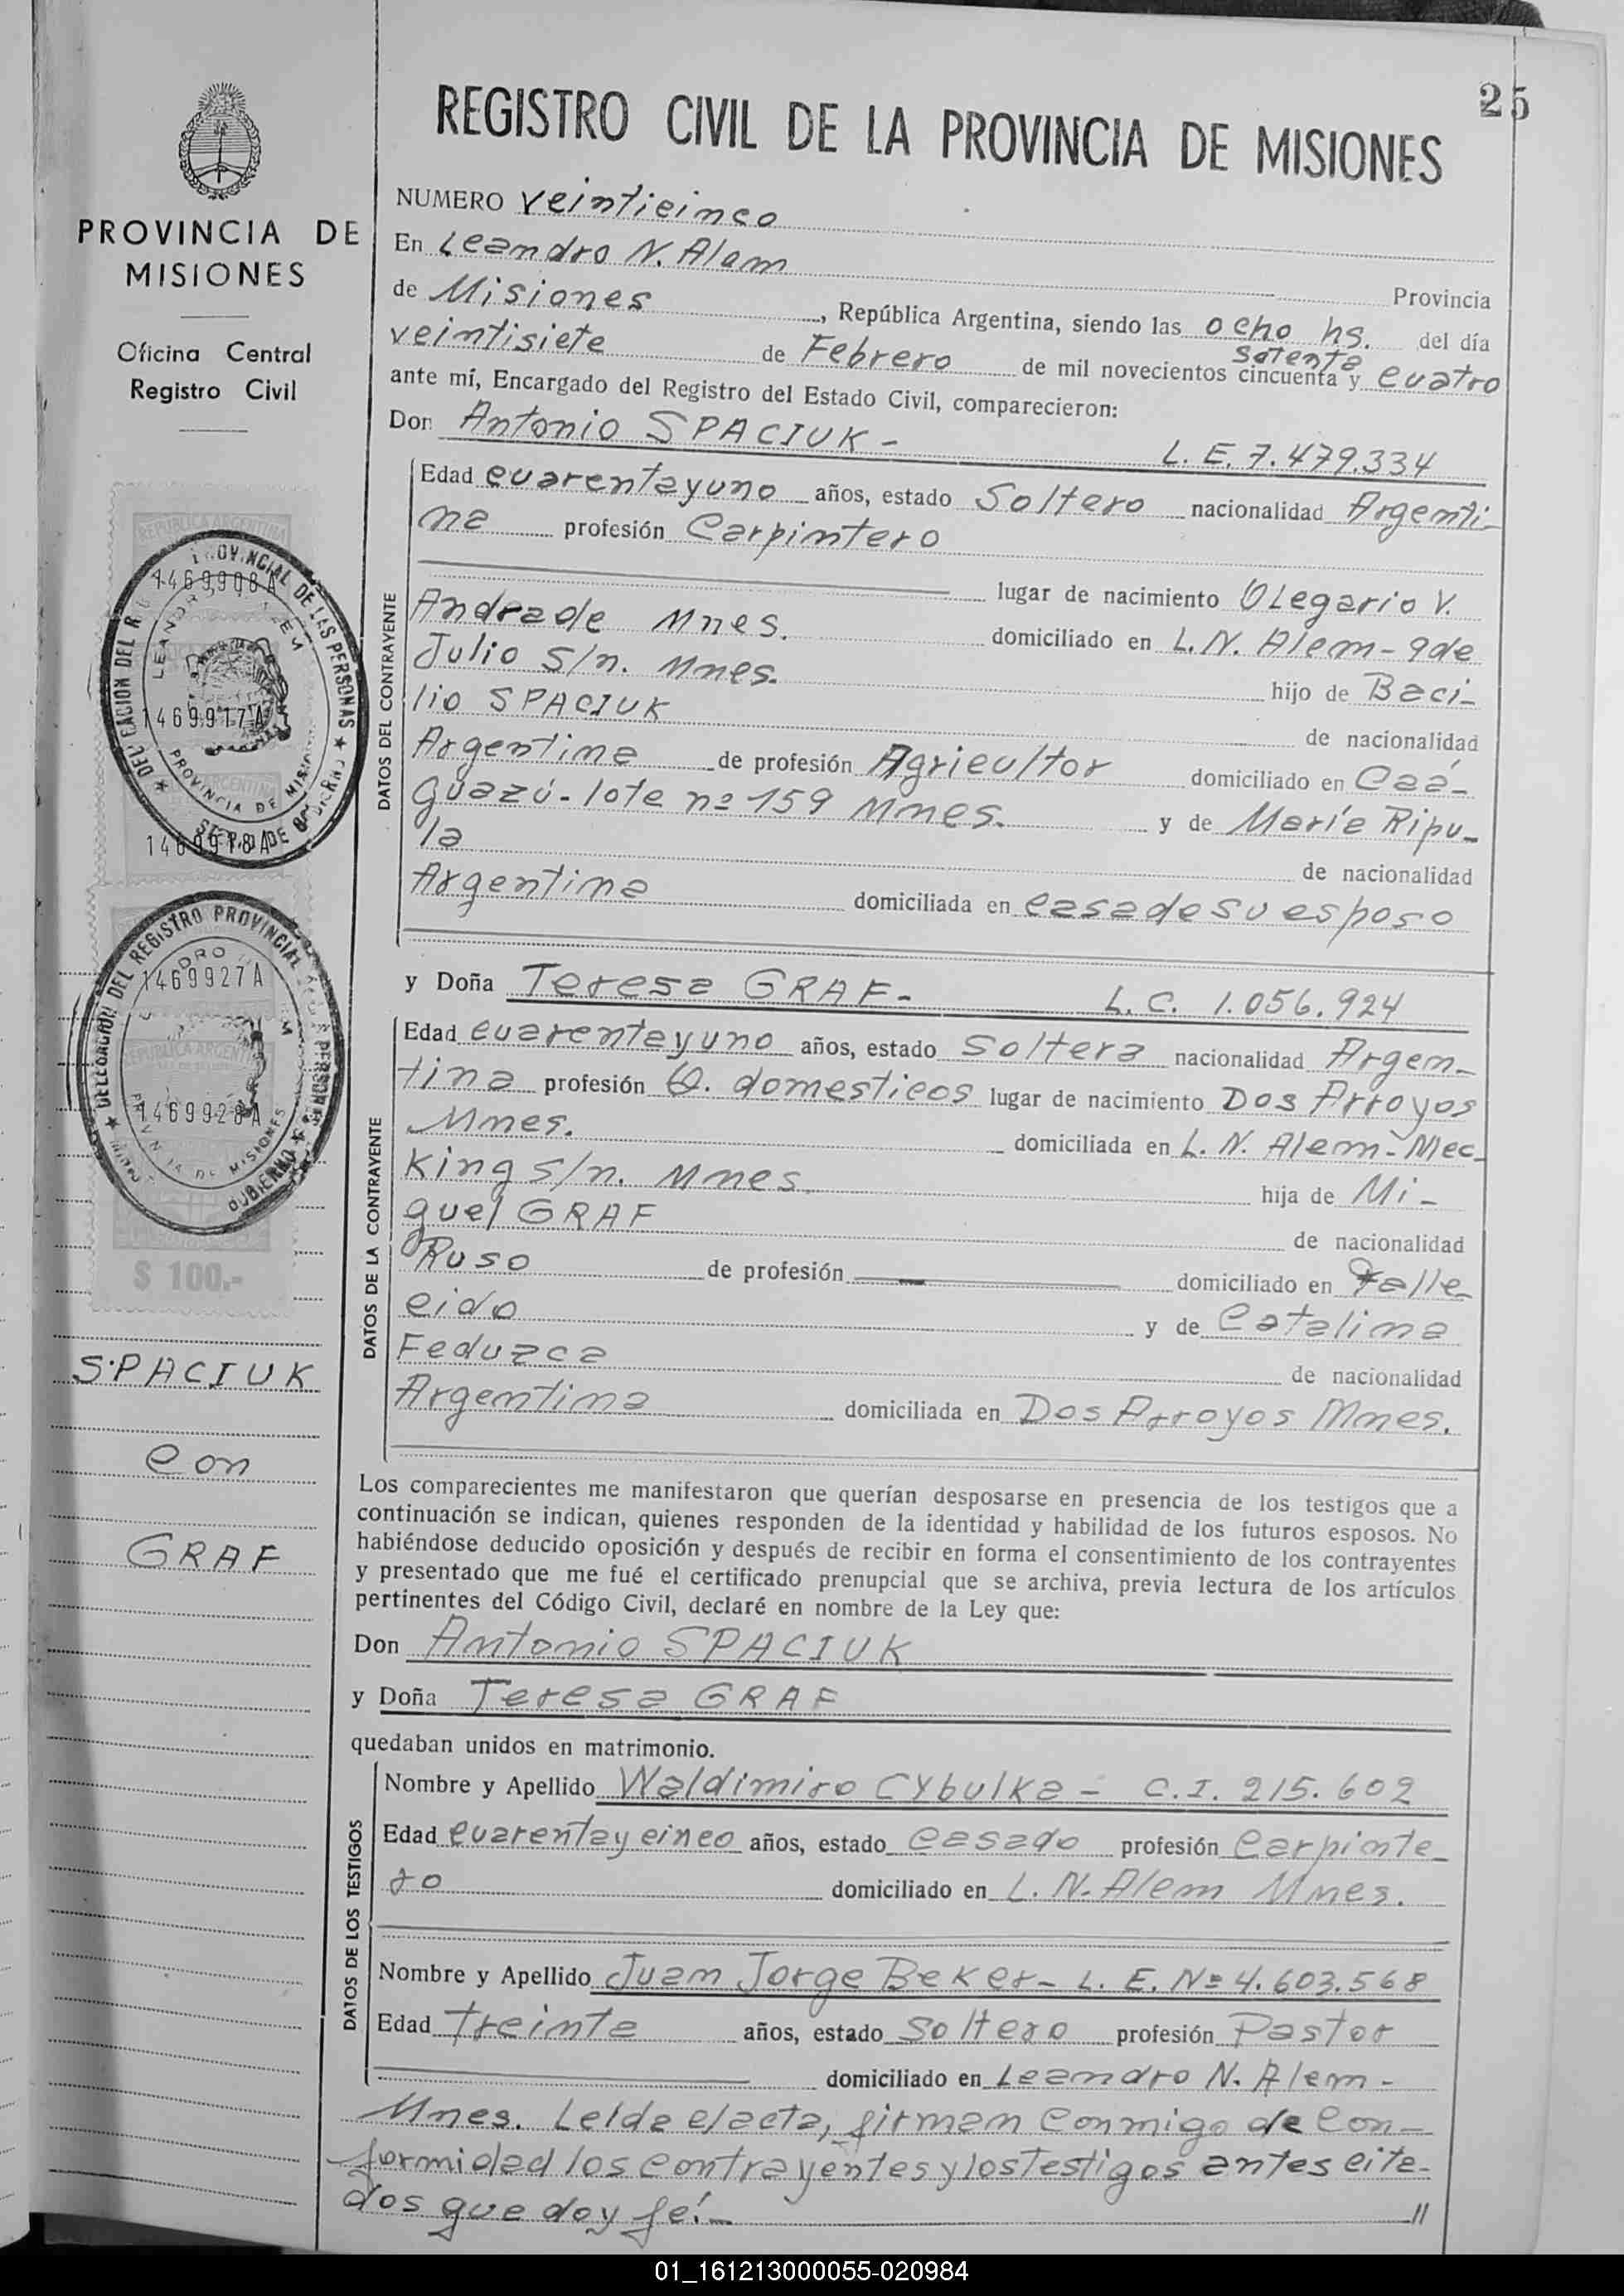 25
REGISTRO CIVIL DE LA PROVINCIA DE MISIONES
PROVINCIA DE
MISIONES
Oficina Central
Registro Civil
NUMERO veinticinco
En Leandro N. Alem
Provincia
de Misiones, República Argentina, siendo las ocho hs. del día
veintisiete de Febrero de mil novecientos cincuenta y cuatro
setenta
ante mí, Encargado del Registro del Estado Civil, comparecieron:
Don Antonio SPACIUK - L. E. 7.479.334
DATOS DEL CONTRAYENTE
Edad cuarentayuno años, estado Soltero nacionalidad Argenti-
na profesión Carpintero
lugar de nacimiento Olegario V.
Andrade Mnes. domiciliado en L. N. Alem - 9 de
Julio s/n. Mnes. hijo de Baci-
lio SPACIUK
de nacionalidad
Argentina de profesión Agricultor domiciliado en Caá-
Guazú - lote nº 159 Mnes. y de María Ripu-
la
de nacionalidad
Argentina domiciliada en casa de su esposo
y Doña Teresa GRAF - L. C. 1.056.924
DATOS DE LA CONTRAYENTE
Edad cuarentayuno años, estado Soltera nacionalidad Argen-
tina profesión Q. domesticos lugar de nacimiento Dos Arroyos
Mnes. domiciliada en L. N. Alem - Mec.
King s/n. Mnes. hija de Mi-
guel GRAF
de nacionalidad
Ruso de profesión — domiciliado en Falle-
cido y de Catalina
Feduzca
de nacionalidad
Argentina domiciliada en Dos Arroyos Mnes.
Los comparecientes me manifestaron que querían desposarse en presencia de los testigos que a
continuación se indican, quienes responden de la identidad y habilidad de los futuros esposos. No
habiéndose deducido oposición y después de recibir en forma el consentimiento de los contrayentes
y presentado que me fué el certificado prenupcial que se archiva, previa lectura de los artículos
pertinentes del Código Civil, declaré en nombre de la Ley que:
Don Antonio SPACIUK
y Doña Teresa GRAF
quedaban unidos en matrimonio.
DATOS DE LOS TESTIGOS
Nombre y Apellido Waldimiro CYbulka - C.I. 215.602
Edad cuarentay cinco años, estado casado profesión Carpinte-
ro domiciliado en L. N. Alem Mnes.
Nombre y Apellido Juan Jorge Beker - L. E. Nº 4.603.568
Edad Treinta años, estado Soltero profesión Pastor
domiciliado en Leandro N. Alem -
Mnes. Leida el acta, firman conmigo de con-
formidad los contrayentes y los Testigos antes cita-
dos que doy fé. - //
1469908A
1469917A
1469918A
1469927A
1469928A
$ 100.-
SPACIUK
con
GRAF
01_161213000055-020984